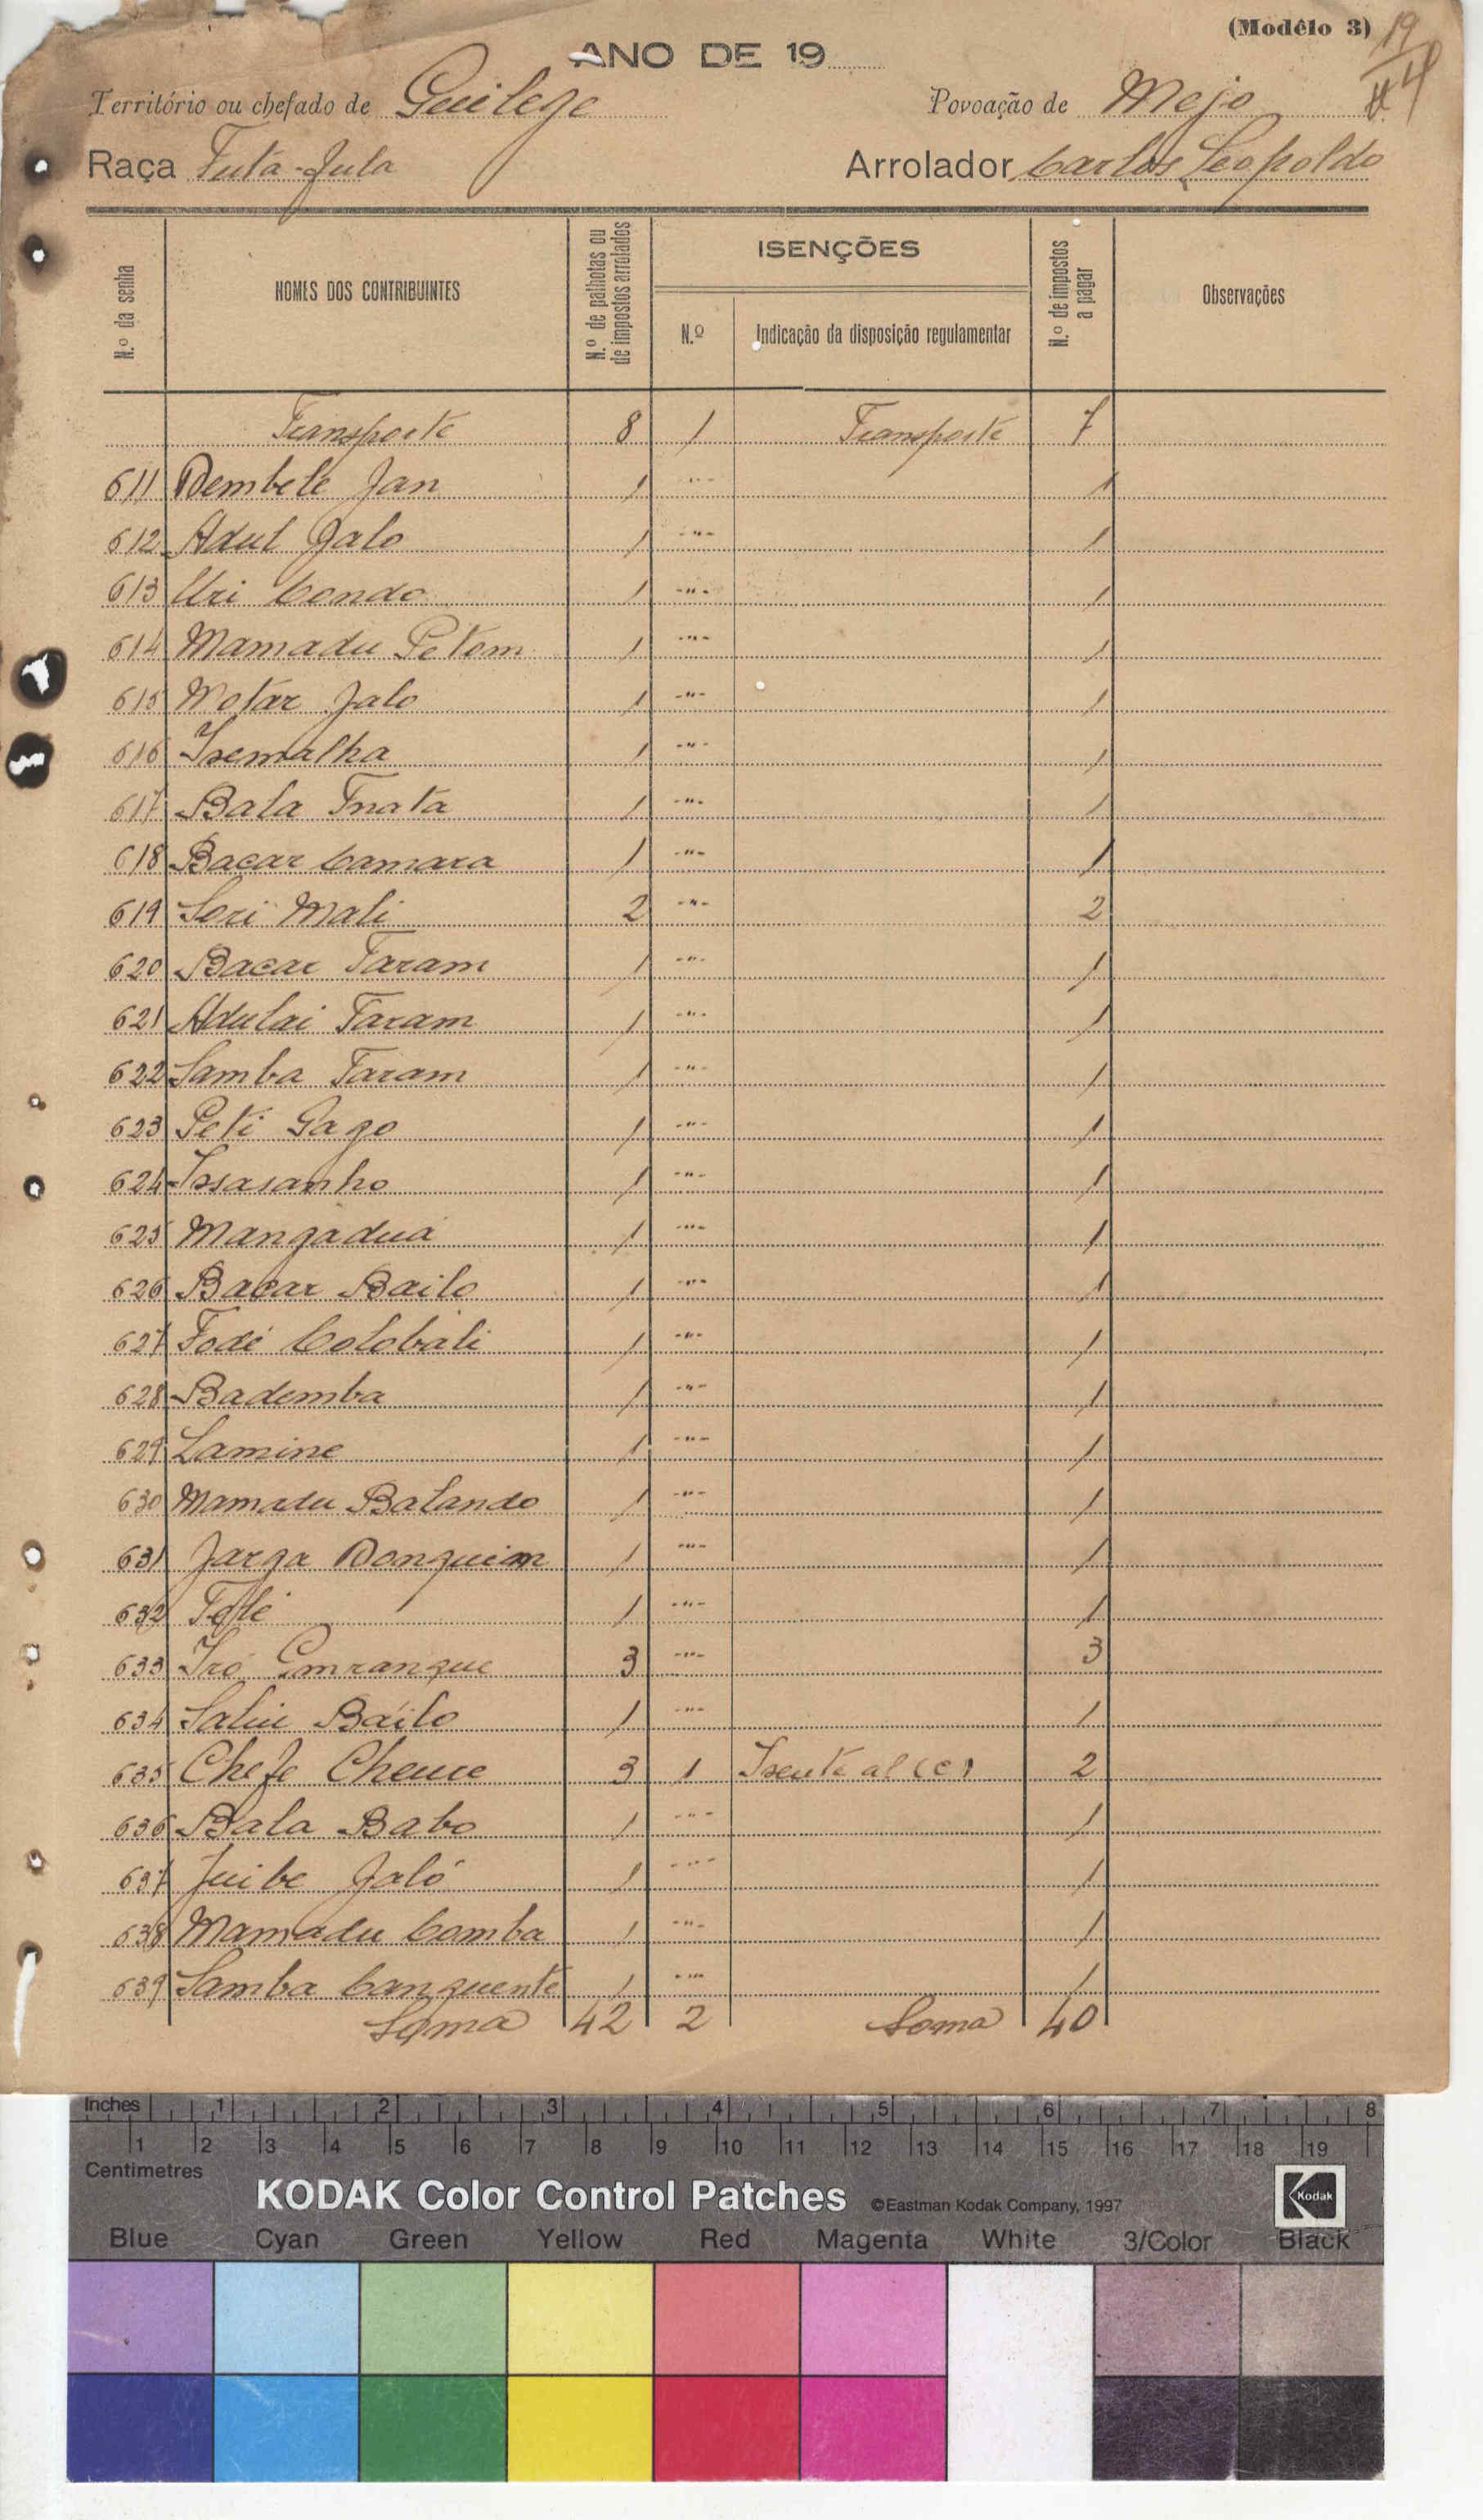 (Modêlo 3) 19
4
ANO DE 19
Território ou chefado de Guilege Povoação de Mejo
Raça Futa-Fula Arrolador Carlos Leopoldo
N.º da senha
HOMES DOS CONTRIBUINTES
N.º de palhotas ou de impostos arrolados
ISENÇÕES
N.º
Indicação da disposição regulamentar
N.º de impostos a pagar
Observações
Transporte 8 1 Transporte 7
611 Dembele Jan 1 -"- 1
612 Adul Jalo 1 -"- 1
613 Uri Condo 1 -"- 1
614 Mamadu Petom 1 -"- 1
615 Motar Jalo 1 -"- 1
616 Isemalha 1 -"- 1
617 Bala Fnata 1 -"- 1
618 Bacar Camara 1 -"- 1
619 Sori Mali 2 -"- 2
620 Bacar Taram 1 -"- 1
621 Adulai Taram 1 -"- 1
622 Samba Taram 1 -"- 1
623 Peti Gago 1 -"- 1
624 Issasanho 1 -"- 1
625 Mangadua 1 -"- 1
626 Bacar Bailo 1 -"- 1
627 Fodé Colobali 1 -"- 1
628 Bademba 1 -"- 1
629 Lamine 1 -"- 1
630 Mamadu Balando 1 -"- 1
631 Jarga Donquim 1 -"- 1
632 1 -"- 1
633 Iró Emrangue 3 -"- 3
634 Saliu Báilo 1 -"- 1
635 Chefe Cheuce 3 1 Isento al (e) 2
636 Bala Babo 1 -"- 1
637 Juibe Jaló 1 -"- 1
638 Mamadu Comba 1 -"- 1
639 Samba Canquente 1 -"- 1
Soma 42 2 Soma 40
Inches 1 2 3 4 5 6 7 8
1 2 3 4 5 6 7 8 9 10 11 12 13 14 15 16 17 18 19
Centimetres
KODAK Color Control Patches ©Eastman Kodak Company, 1997 Kodak
Blue Cyan Green Yellow Red Magenta White 3/Color Black